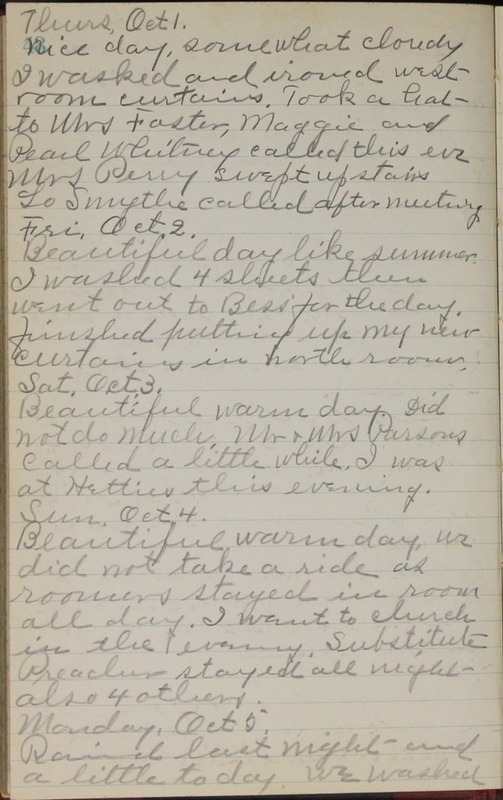 Thurs, Oct 1.
Nice day, somewhat cloudy
I washed and ironed west
room curtains. Took a hat
to Mrs Foster, Maggie and
Pearl Whitney called this eve
Mrs Perry swept upstairs
Lo Smythe called after meeting
Fri, Oct. 2.
Beautiful day like summer.
I washed 4 sheets then
went out to Bess' for the day.
finished putting up my new
curtains in north room.
Sat, Oct 3.
Beautiful warm day, Did
not do much, Mr & Mrs Parsons
called a little while. I was
at Hetties this evening.
Sun, Oct 4.
Beautiful warm day, we
did not take a ride as
roomers stayed in room
all day. I went to church
in the evening. Substitute
Preacher stayed all night
also 4 others.
Monday, Oct 5.
Rained last night and
a little today. We washed